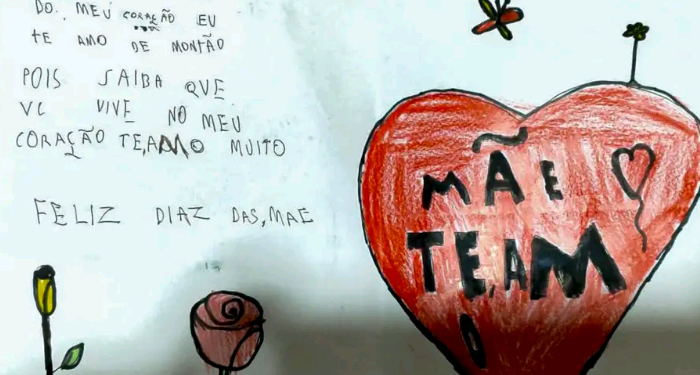 DO. MEU CORAÇÃO EU
TE AMO DE MONTÃO
POIS SAIBA QUE
VC VIVE NO MEU
CORAÇÃO TE,AMO MUITO
FELIZ DIAZ DAS,MAE
MÃE
TE,AM
O